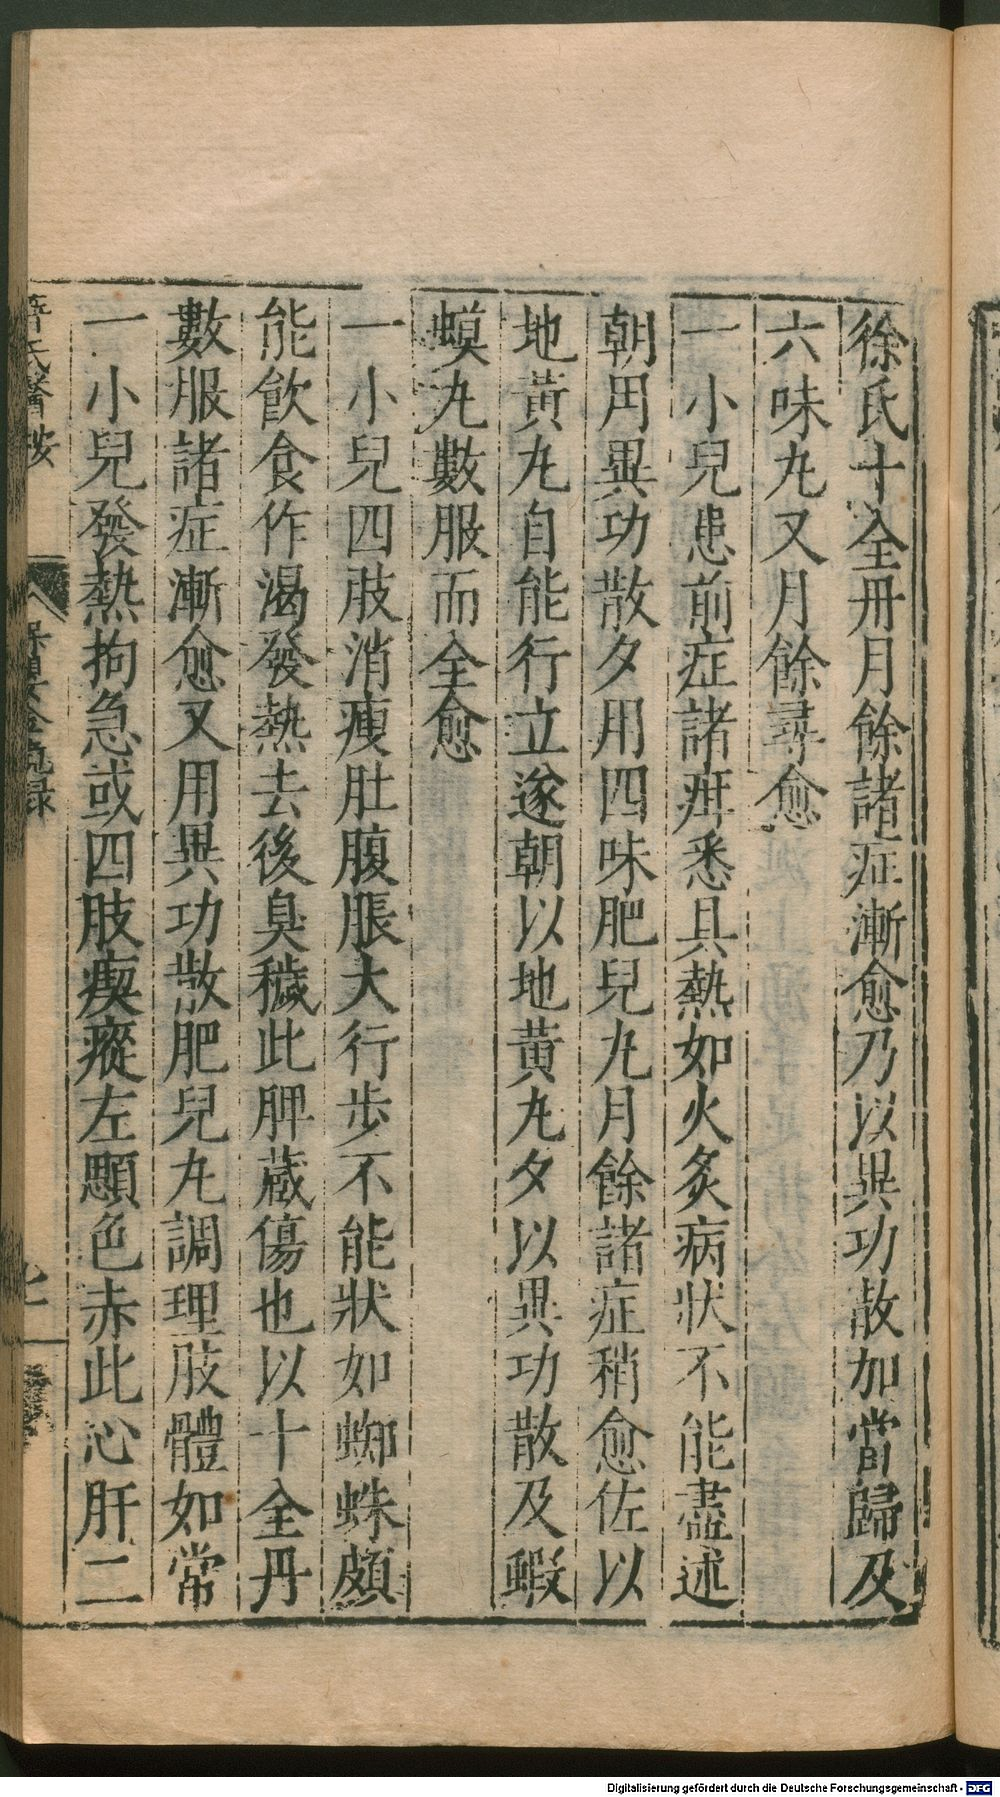 徐氏十全丹月餘諸症漸愈乃以異功散加當歸及
六味丸又月餘尋愈
一小兒患前症諸疳悉具熱如火炙病狀不能盡述
朝用異功散夕用四味肥兒丸月餘諸症稍愈佐以
地黃丸自能行立遂朝以地黃丸夕以異功散及蝦
蟆丸數服而全愈
一小兒四肢消瘦肚腹脹大行步不能狀如蜘蛛頗
能飲食作渴發熱去後臭穢此脾蔵傷也以十全丹
數服諸症漸愈又用異功散肥兒丸調理肢體如常
一小兒發熱拘急或四肢瘈瘲左顋色赤此心肝二
薛氏醫按 保嬰金鏡録
Digitalisierung gefördert durch die Deutsche Forschungsgemeinschaft - DFG